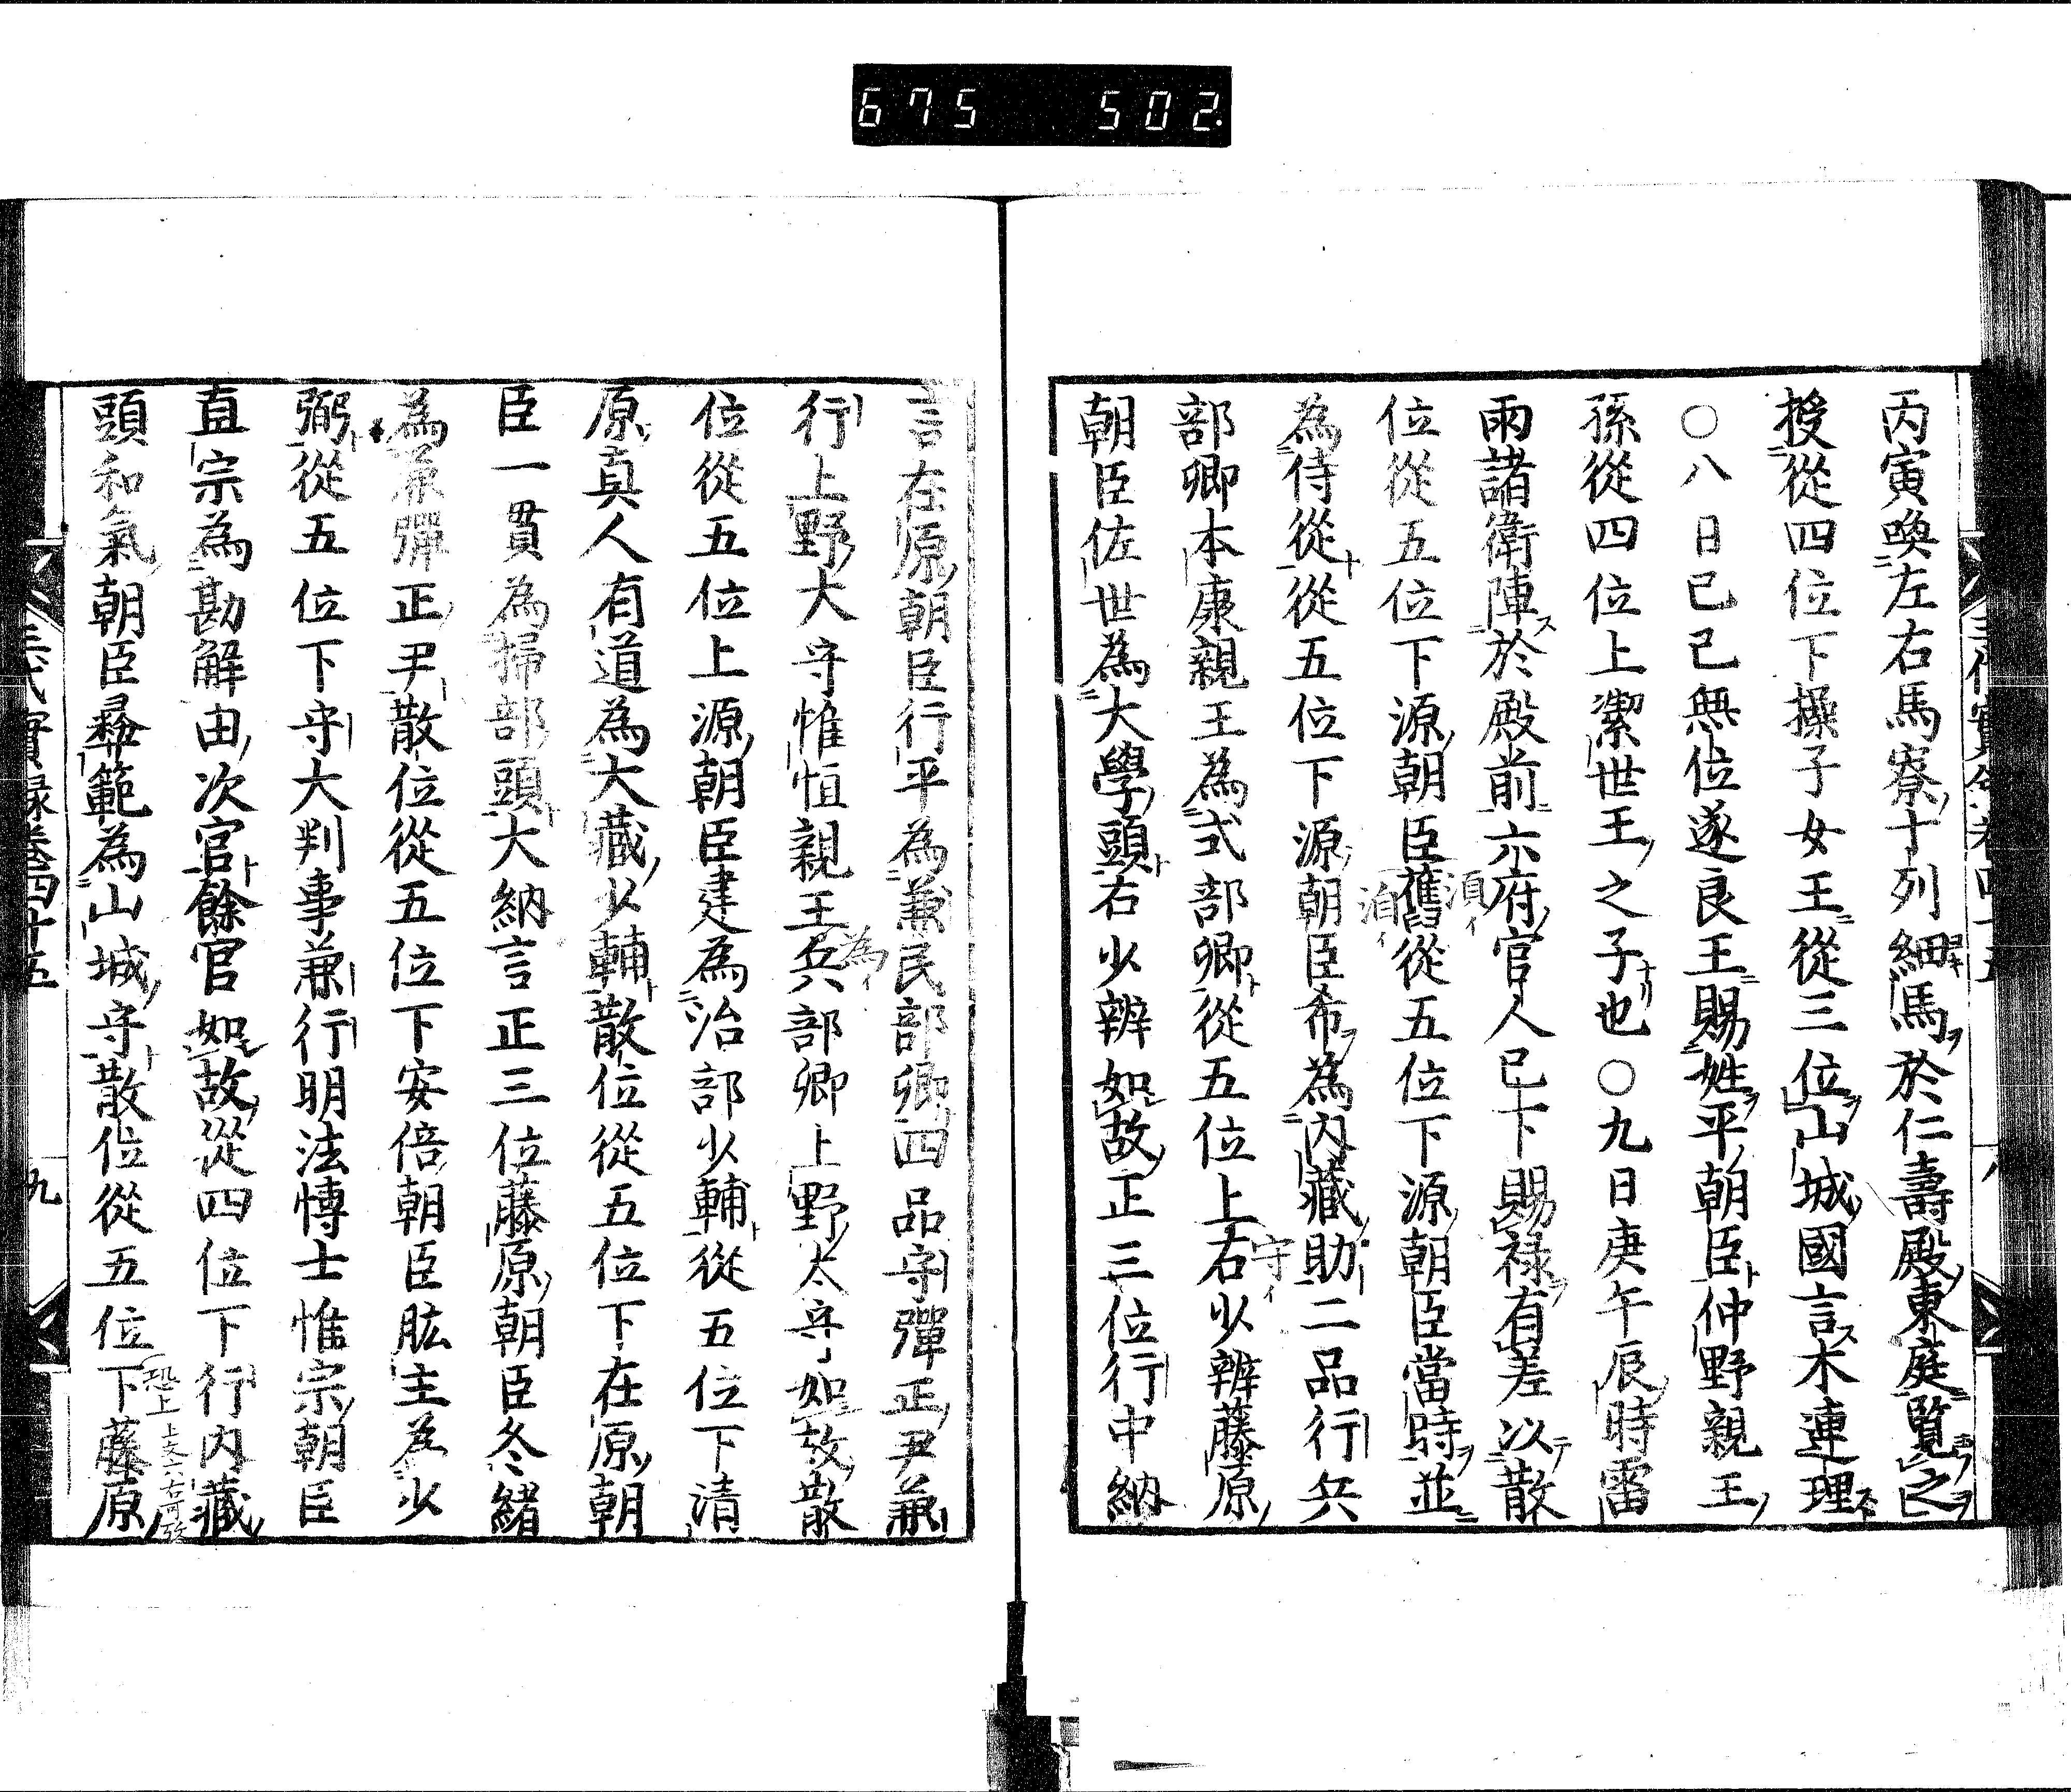 675 502
丙寅喚左右馬寮十列細馬於仁壽殿東庭覧之
授從四位下操子女王從三位山城國言木連理
○八日己巳無位遂良王賜姓平朝臣仲野親王
孫從四位上潔世王之子也○九日庚午辰時雷
雨諸衛陣於殿前六府官人已下賜禄有差以散
位從五位下源朝臣舊從五位下源朝臣當時並
為侍從從五位下源朝臣希為内藏助二品行兵
部卿本康親王為式部卿從五位上右少辨藤原
朝臣佐世為大學頭右少辨如故正三位行中納
言在原朝臣行平為兼民部卿四品守彈正尹兼
行上野大守惟恒親王兵部卿上野太守如故散
位從五位上源朝臣建為治部少輔從五位下清
原真人有道為大藏少輔散位從五位下在原朝
臣一貫為掃部頭大納言正三位藤原朝臣冬緒
為兼彈正尹散位從五位下安倍朝臣肱主為少
弼從五位下守大判事兼行明法博士惟宗朝臣
直宗為勘解由次官餘官如故從四位下行内藏
頭和氣朝臣彝範為山城守散位從五位下藤原
三代實録卷四十五
九